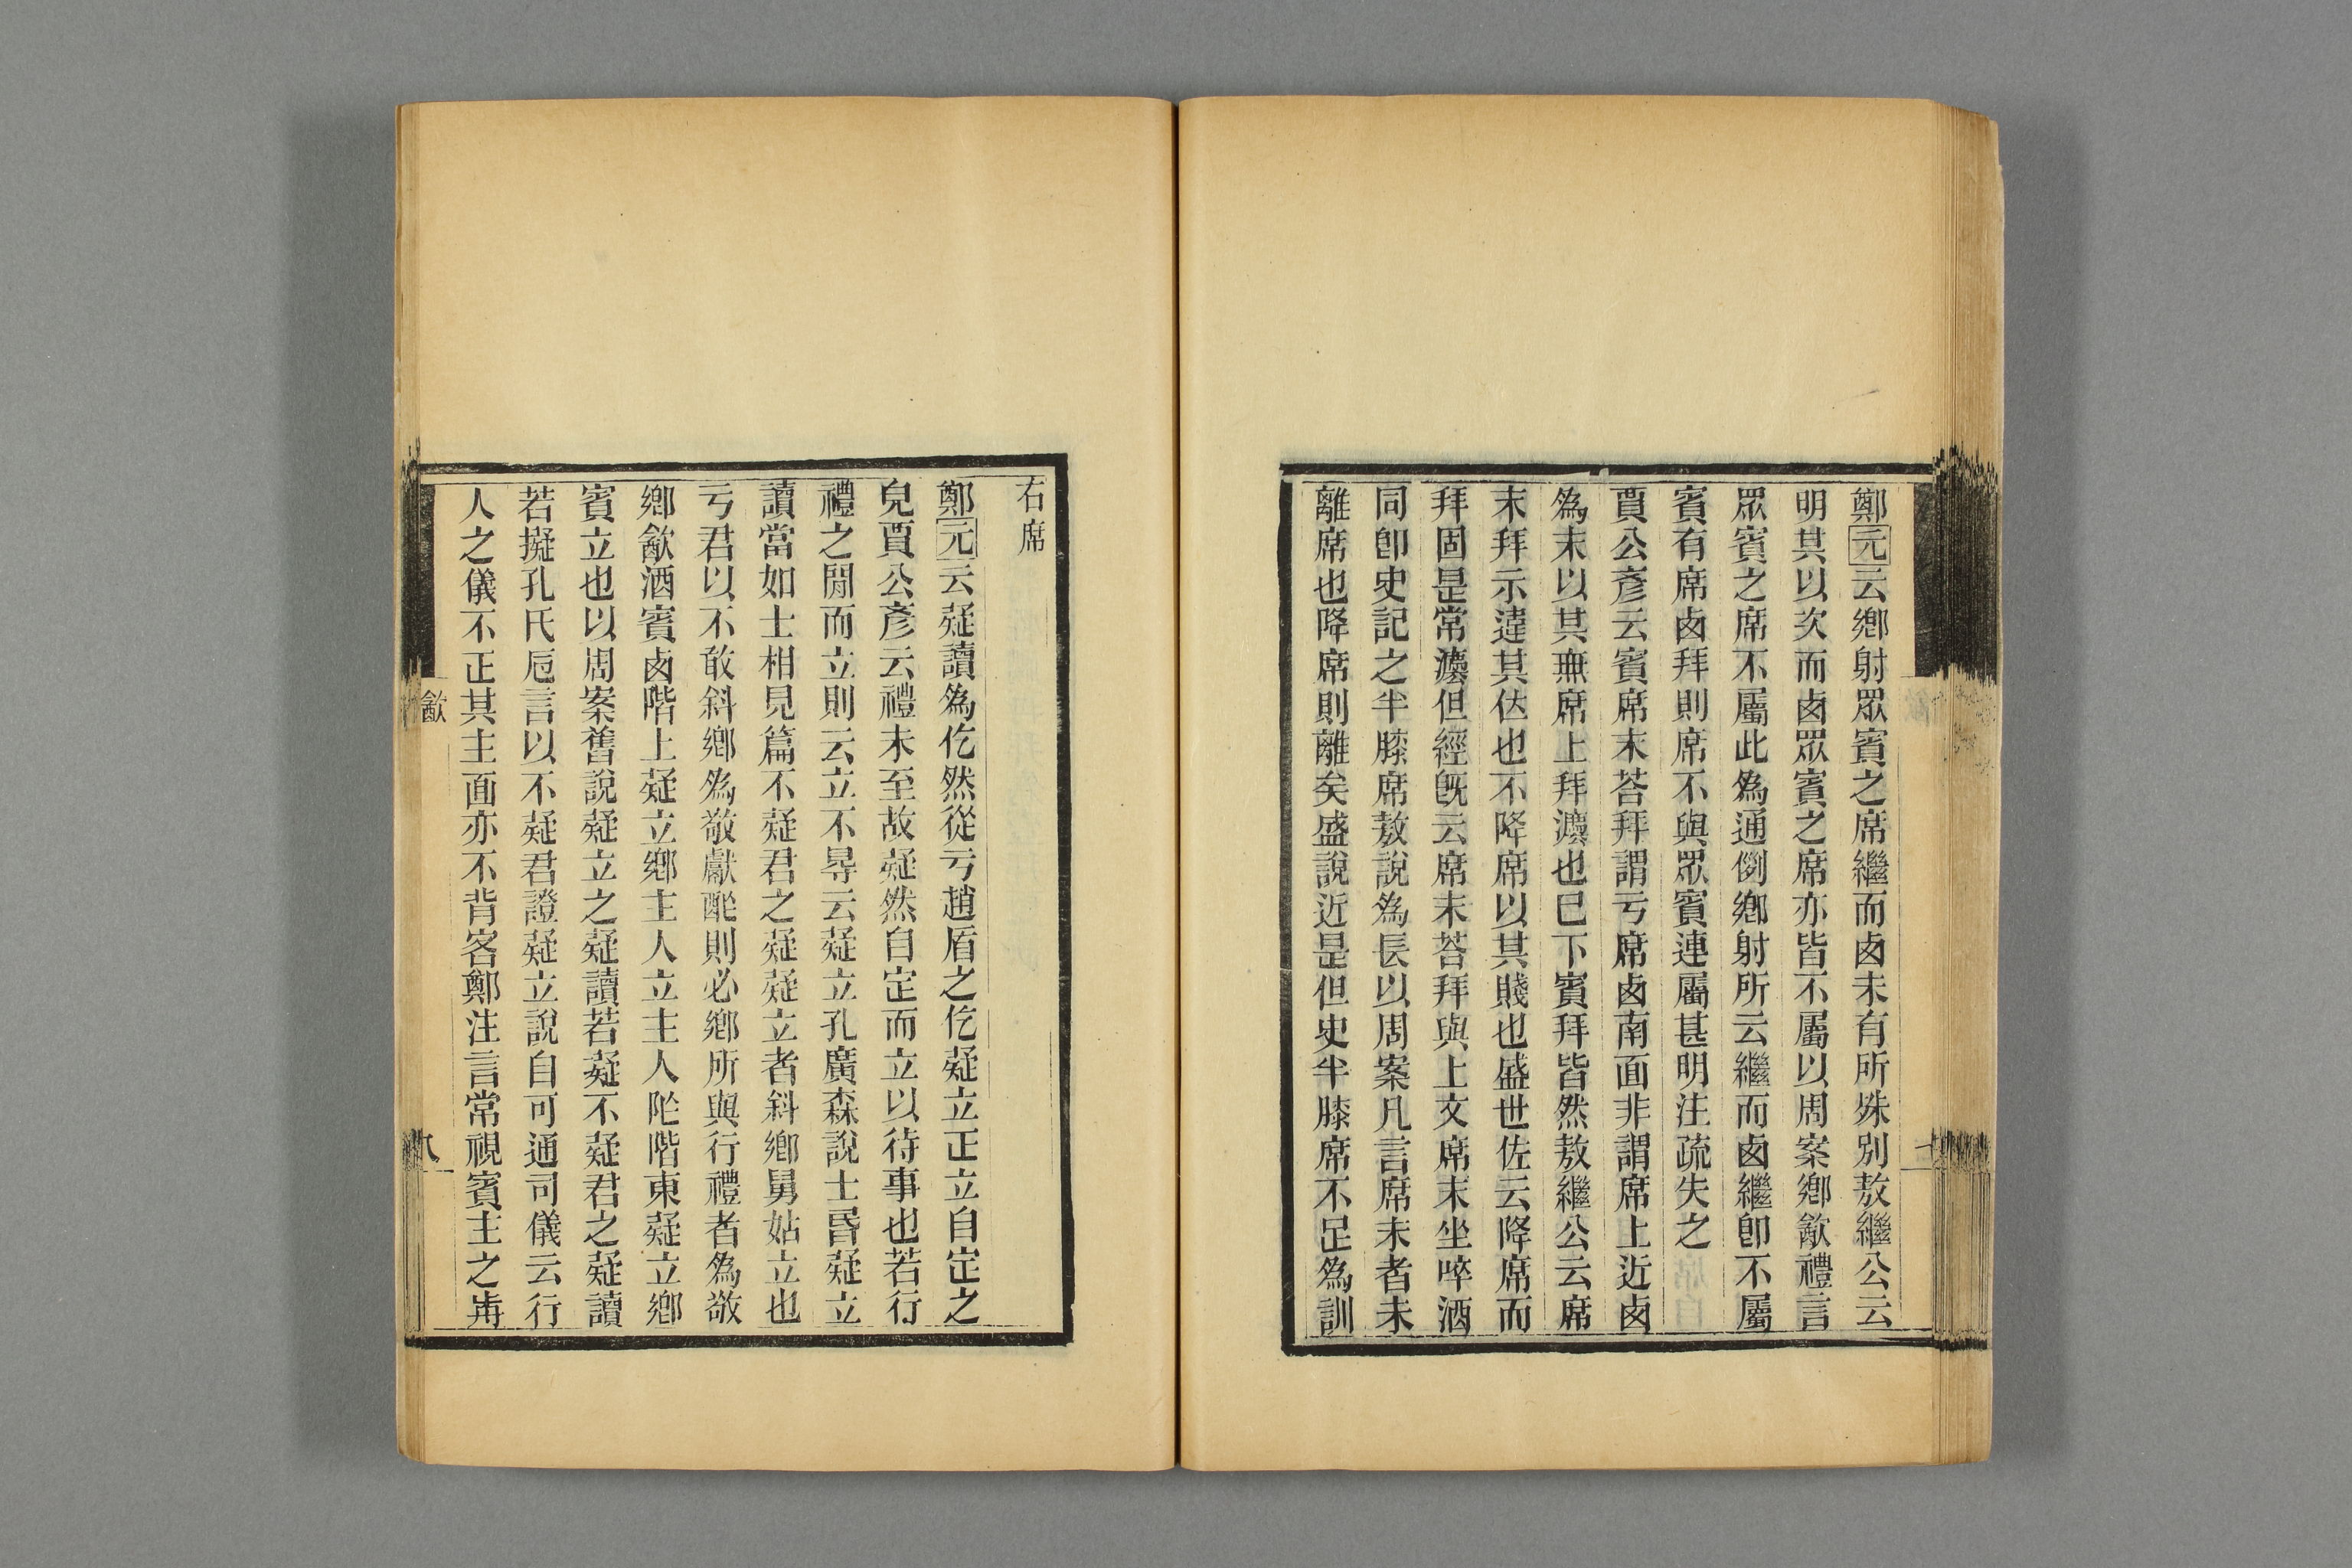 鄭元云鄉射眾賓之席繼而卤未有所殊別敖繼公云
明其以次而卤眾賓之席亦皆不屬以周案鄉歙禮言
眾賓之席不屬此為通例鄉射所云繼而卤繼卽不屬
賓有席卤拜則席不與眾賓連屬甚明注疏失之
賈公彥云賓席末荅拜謂亏席卤南面非謂席上近卤
為末以其無席上拜灋也巳下賓拜皆然敖繼公云席
末拜示違其位也不降席以其賤也盛世佐云降席而
拜固是常灋但經旣云席末荅拜與上文席末坐啐酒
同卽史記之半膝席敖說為長以周案凡言席末者未
離席也降席則離矣盛說近是但史半膝席不足為訓
右席
鄭元云疑讀為仡然從亏趙盾之仡疑立正立自定之
皃賈公彥云禮未至故疑然自定而立以待事也若行
禮之閒而立則云立不得云疑立孔廣森說士昬疑立
讀當如士相見篇不疑君之疑疑立者斜鄉舅姑立也
亏君以不敢斜鄉為敬獻酢則必鄉所與行禮者為敬
鄉歙酒賓卤階上疑立鄉主人立主人阼階東疑立鄉
賓立也以周案舊說疑立之疑讀若疑不疑君之疑讀
若擬孔氏卮言以不疑君證疑立說自可通司儀云行
人之儀不正其主面亦不背客鄭注言常視賓主之歬
歙
八